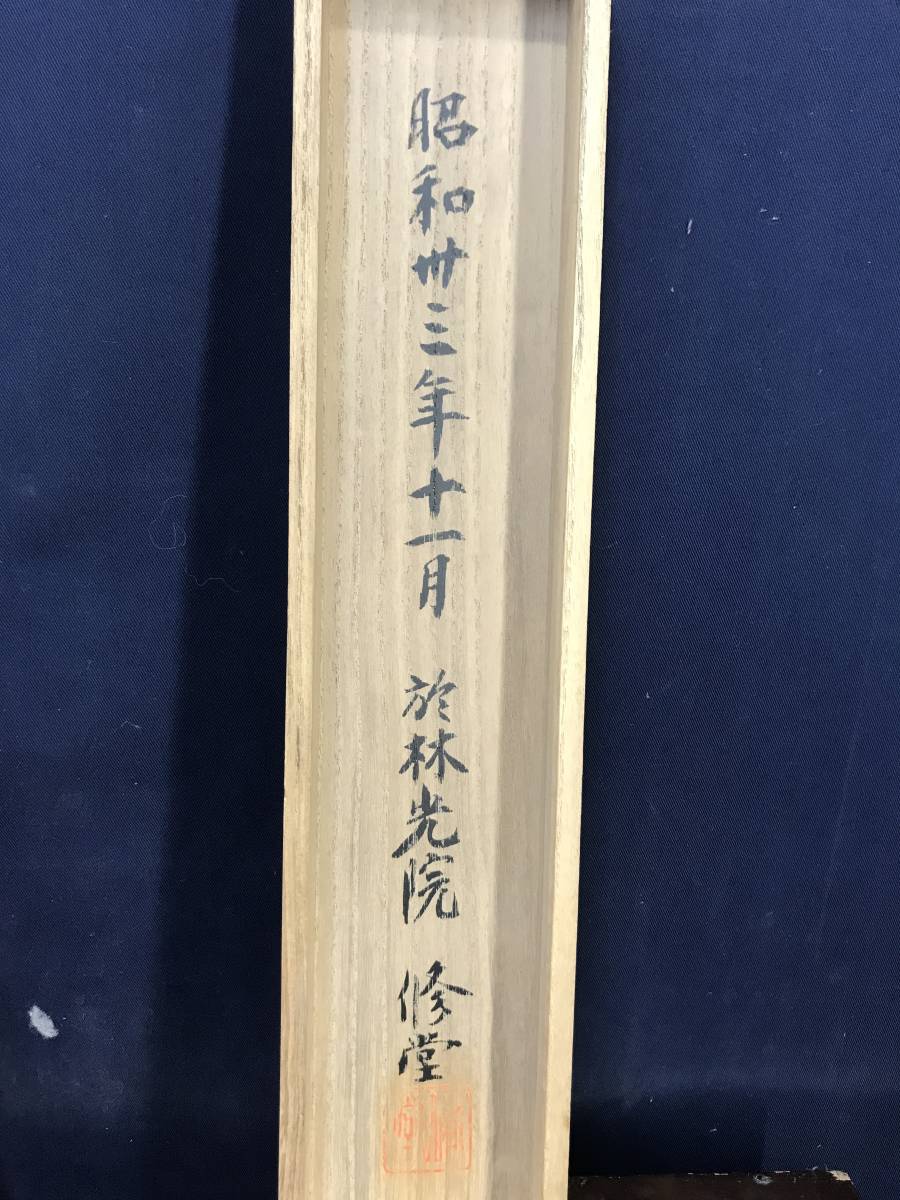 昭和卅三年十一月 於林光院 修堂